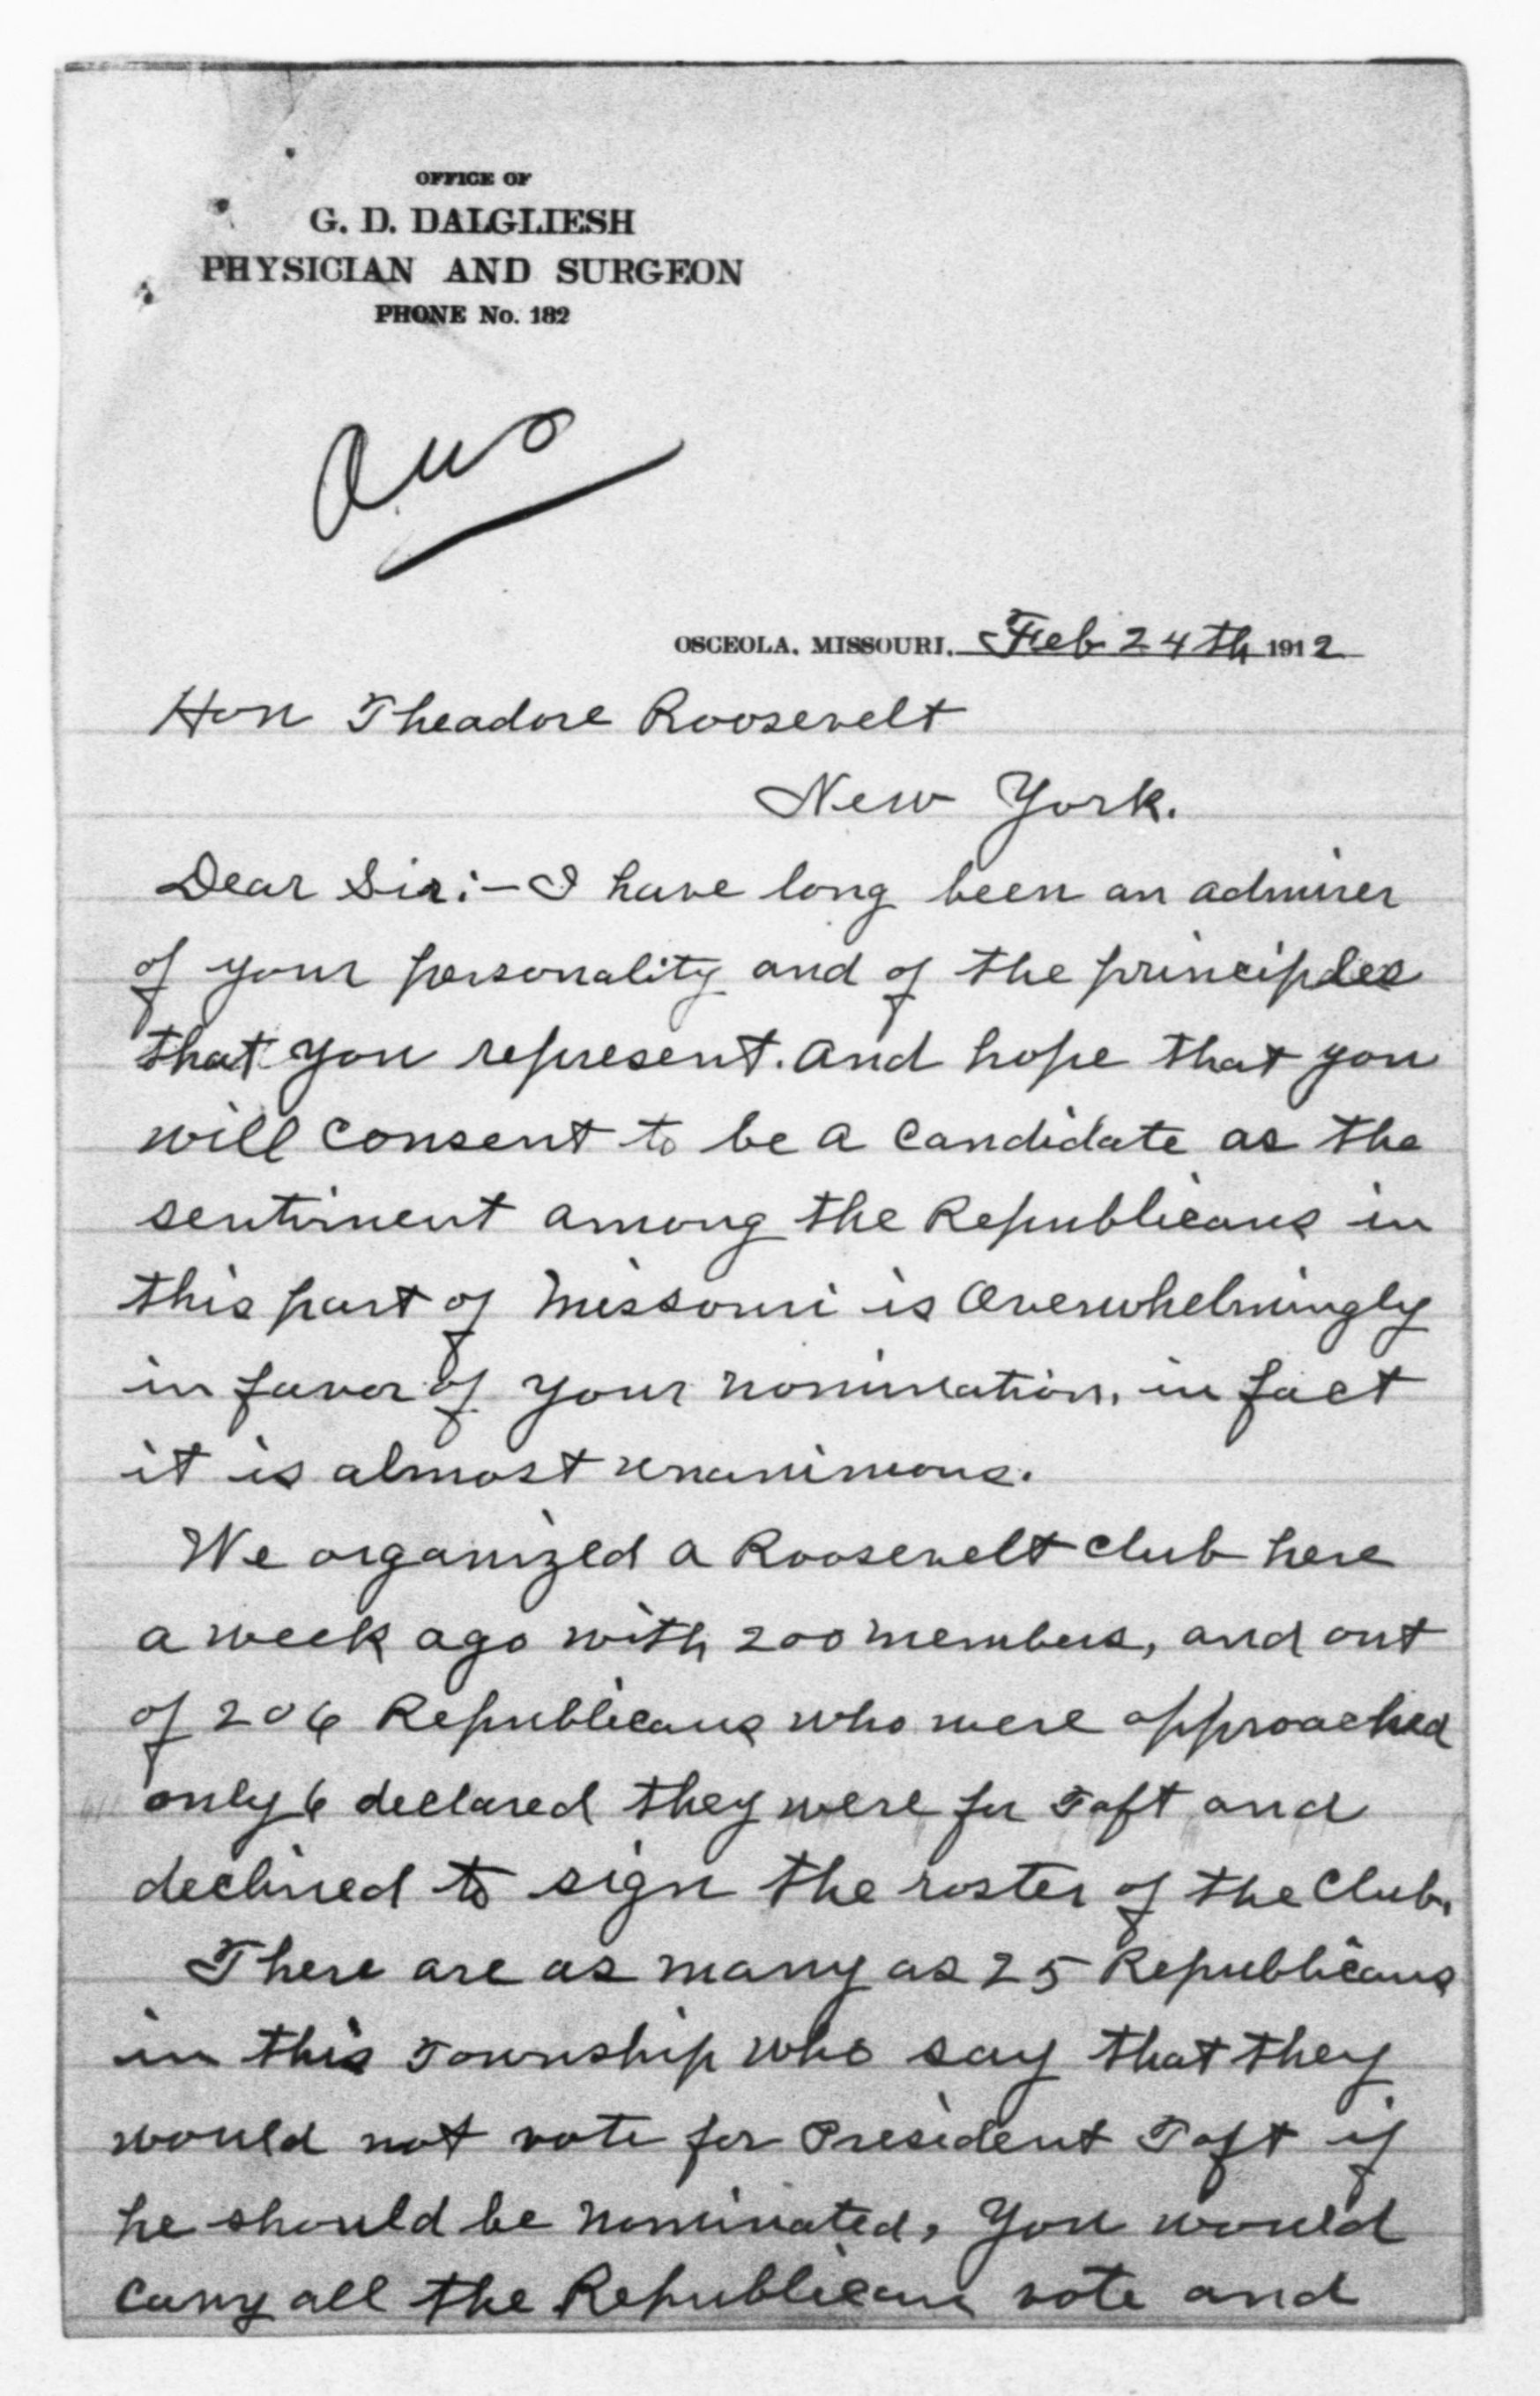 OFFICE OF
G. D. DALGLIESH
PHYSICIAN AND SURGEON
PHONE No. 182
Ans
OSCEOLA, MISSOURI, Feb 24th 1912
Hon Theadore Roosevelt
New York.
Dear Sir:- I have long been an admirer
of your personality and of the principles
that you represent. And hope that you
will consent to be a candidate as the
sentiment among the Republicans in
this part of Missouri is Overwhelmingly
in favor of your nomination, in fact
it is almost unanimous.
We organized a Roosevelt Club here
a week ago with 200 members, and out
of 206 Republicans who were approached
only 6 declared they were for Taft and
declined to sign the roster of the Club.
There are as many as 25 Republicans
in this Township who say that they
would not vote for President Taft if
he should be nominated, You would
carry all the Republican vote and